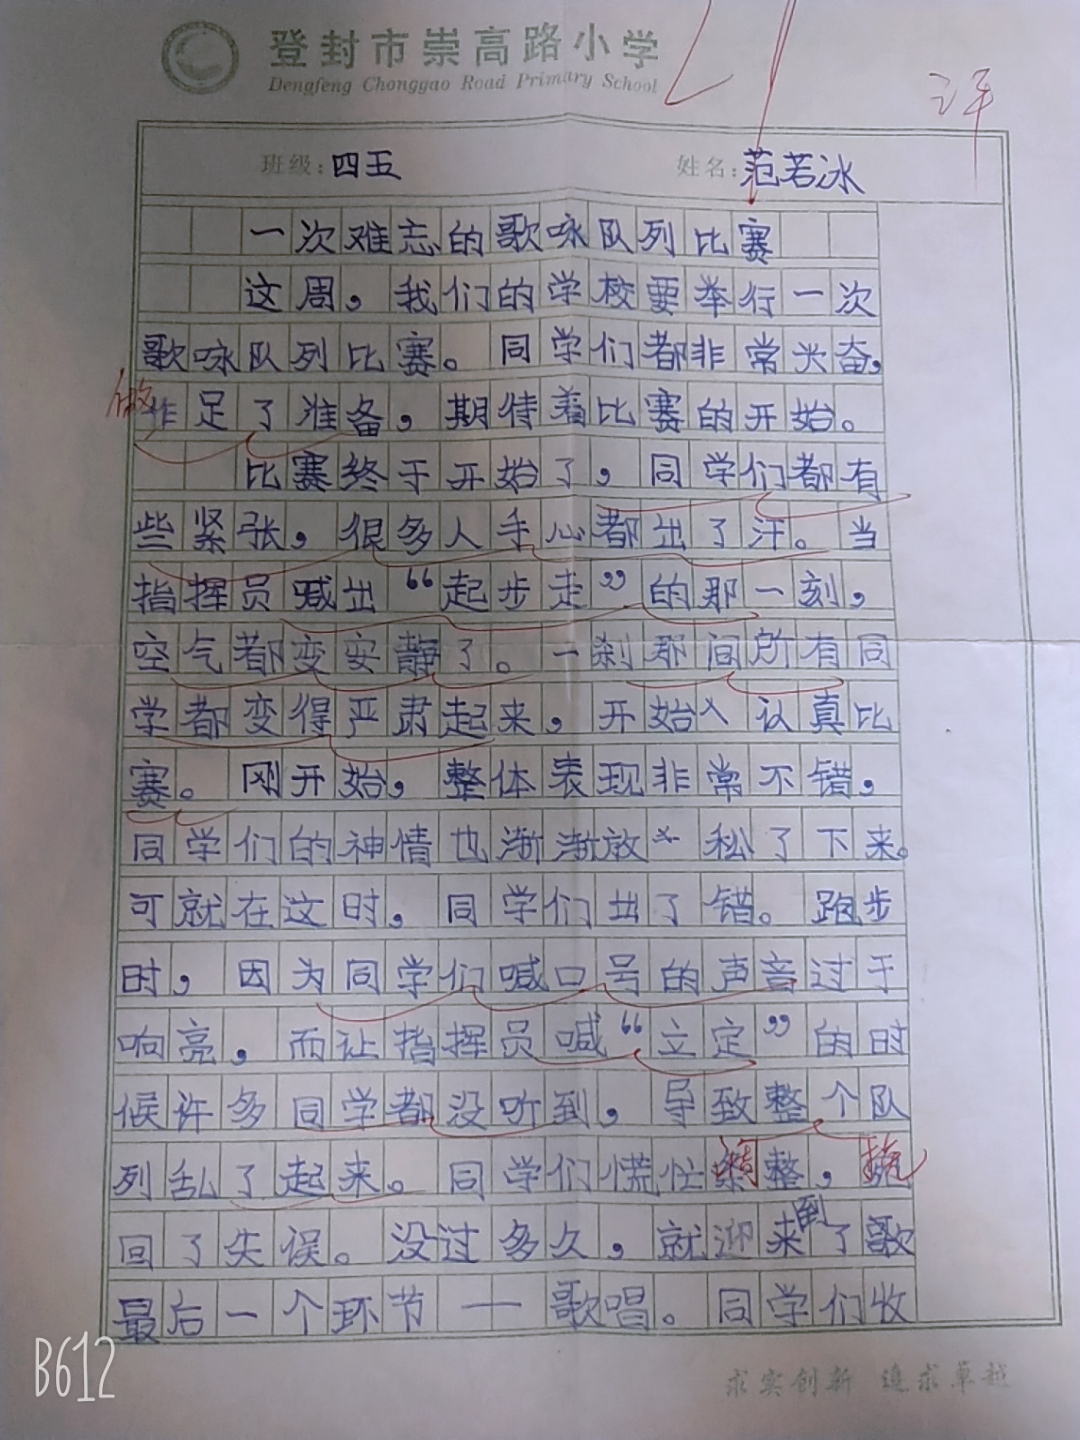 登封市崇高路小学
Dengfeng Chonggao Road Primary School
评
班级：四五 姓名：范若冰
一次难忘的歌咏队列比赛
这周，我们的学校要举行一次
歌咏队列比赛。同学们都非常兴奋，
做
作足了准备，期待着比赛的开始。
比赛终于开始了，同学们都有
些紧张，很多人手心都出了汗。当
指挥员喊出“起步走”的那一刻，
空气都变安静了。一刹那间所有同
学都变得严肃起来，开始认真比
赛。刚开始，整体表现非常不错，
同学们的神情也渐渐放松了下来。
可就在这时，同学们出了错。跑步
时，因为同学们喊口号的声音过于
响亮，而让指挥员喊“立定”的时
候许多同学都没听到，导致整个队
列乱了起来。同学们慌忙整，挽
回了失误。没过多久，就迎来到了歌
最后一个环节——歌唱。同学们收
求实创新 追求卓越
B612